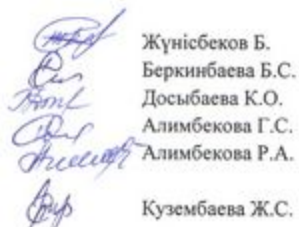 Жүнісбеков Б.
Беркинбаева Б.С.
Досыбаева К.О.
Алимбекова Г.С.
Алимбекова Р.А.
Кузембаева Ж.С.